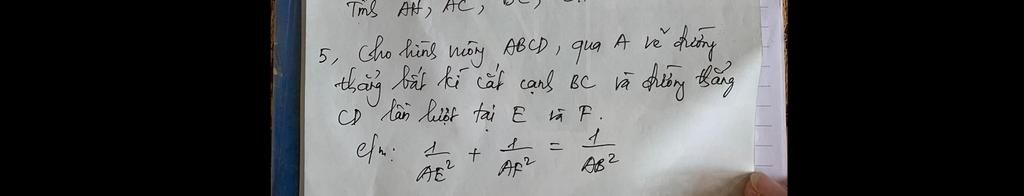 Tính AH, AC, BC,
5, Cho hình vuông ABCD, qua A vẽ đường
thẳng bất kì cắt cạnh BC và đường thẳng
CD lần lượt tại E và F.
c/m: 1/AE² + 1/AF² = 1/AB²